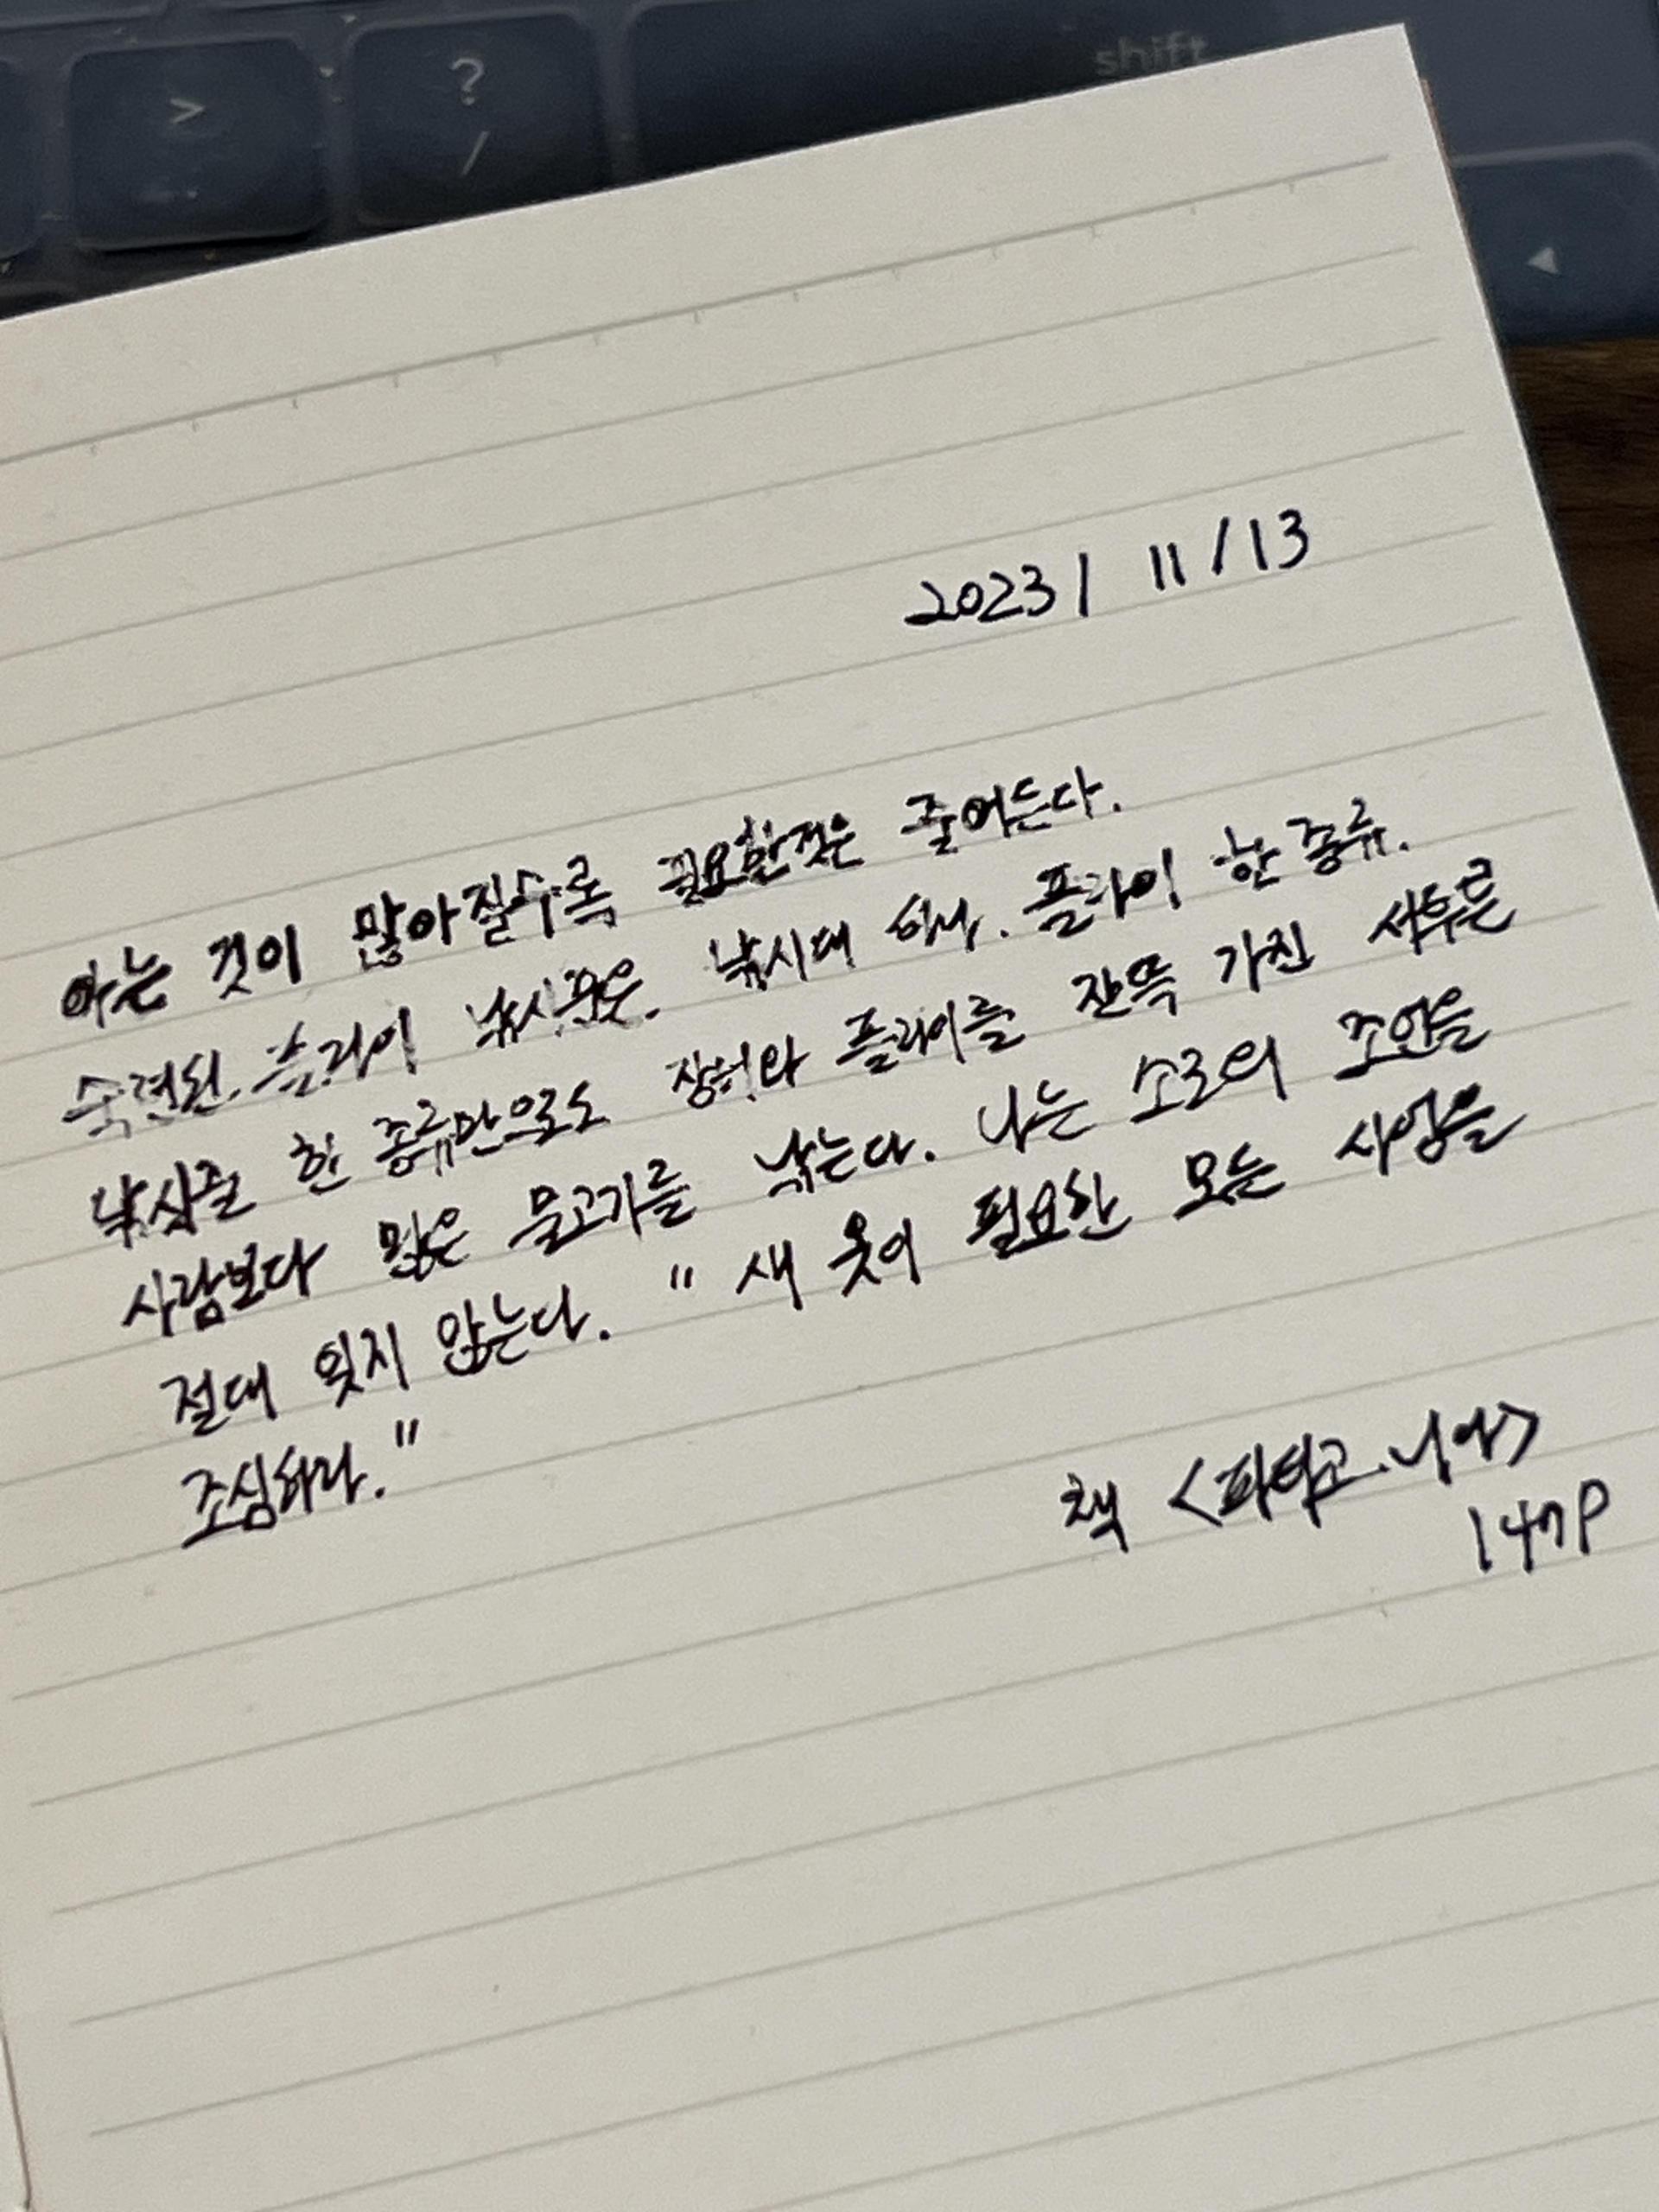 >
?
/
shift
◀
2023/ 11/13
아는 것이 많아질수록 필요한것은 줄어든다.
숙련된 플라이 낚시꾼은. 낚시대 하나. 플라이 한 종류.
낚싯줄 한 종류만으로도 장비와 플라이를 잔뜩 가진 서투른
사람보다 많은 물고기를 낚는다. 나는 소로의 조언을
절대 잊지 않는다. " 새 옷이 필요한 모든 사업을
조심하라."
책 <파타고니아>
147P